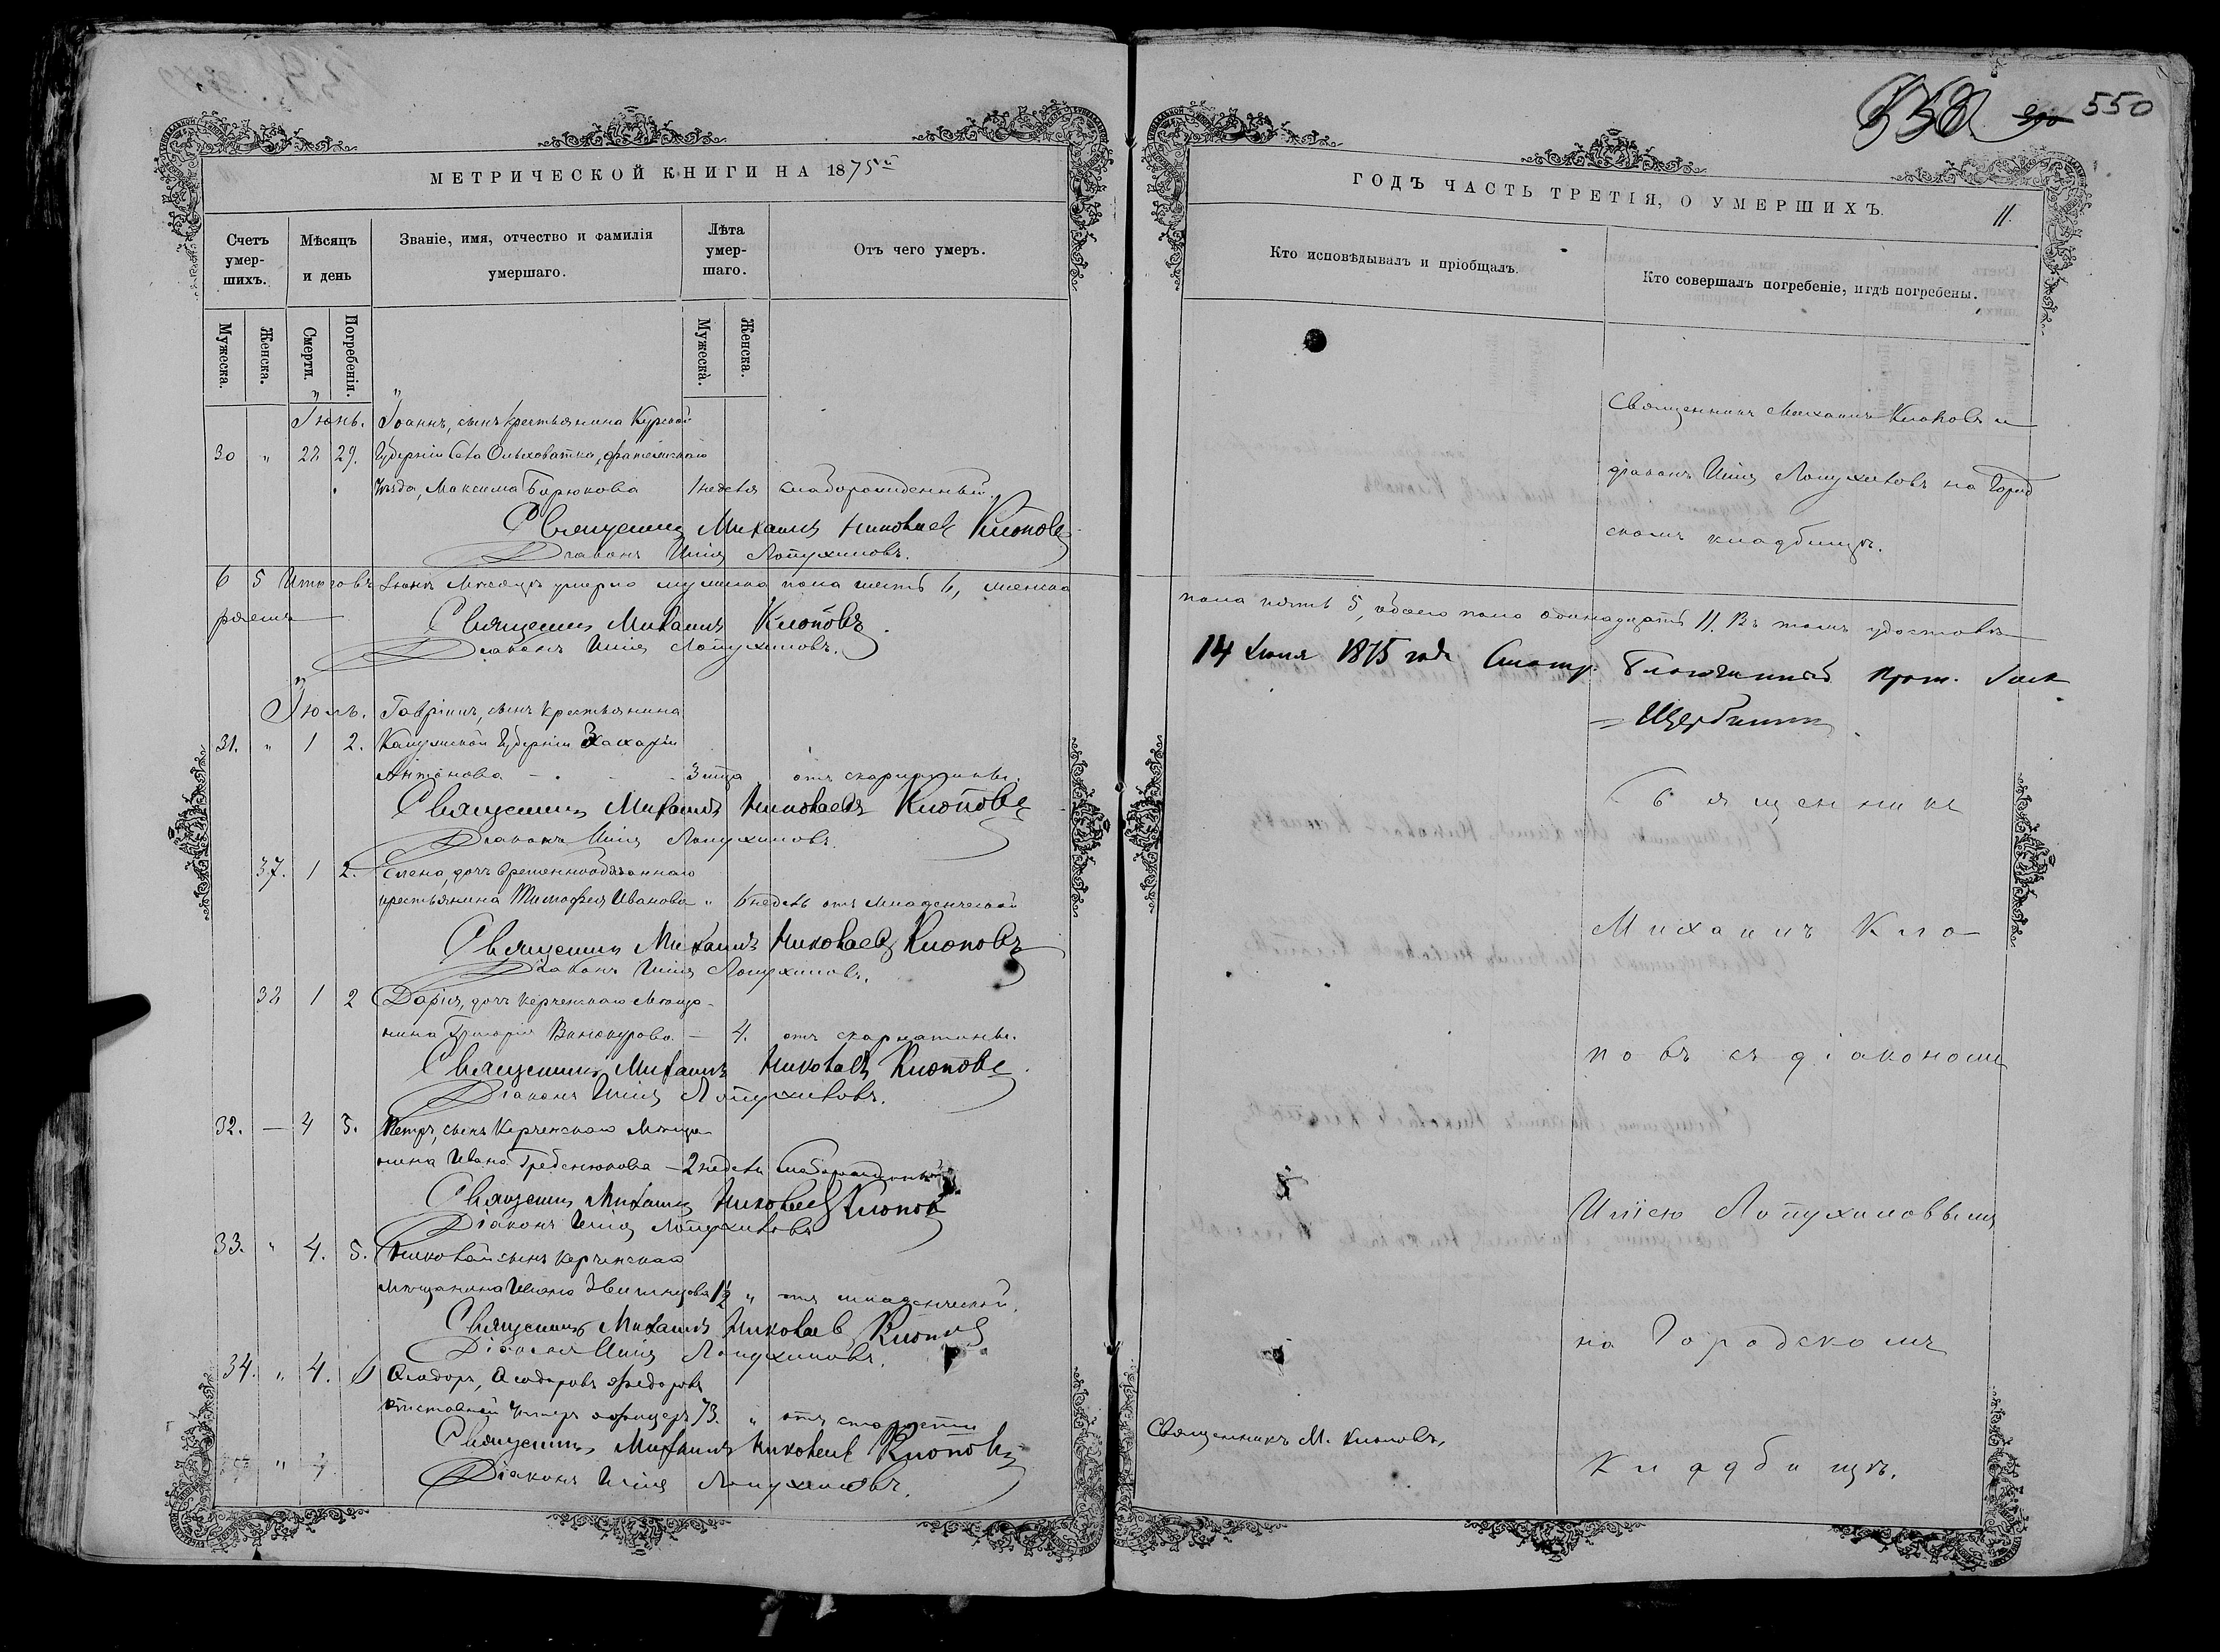 550
МЕТРИЧЕСКОЙ КНИГИ НА 1875ый
Счетъ умер-шихъ.
Мѣсяцъ и день
Званіе, имя, отчество и фамилія умершаго.
Лѣта умер-шаго.
Отъ чего умеръ.
Мужеска.
Женска.
Смерти.
Погребенія.
Мужеска.
Женска.
Іюнь. Іоаннъ, сынъ крестьянина Курской
30 " 28 29. Губерніи Села Ольховатки, Фатежскаго
Уѣзда, Максима Бирюкова 1 недѣля слаборожденный.
Священникъ Михаилъ Николаевъ Клоповъ
Діаконъ Илія Лопухиновъ.
6 5 Итого въ Іюнѣ Мѣсяцѣ умерло мужеска пола шесть 6, женска
Священникъ Михаилъ Клоповъ.
Діаконъ Илія Лопухиновъ.
Іюль. Гавріилъ, сынъ крестьянина
31. " 1 2. Калужской Губерніи Захарія
Антонова 3 года отъ скарлатины.
Священникъ Михаилъ Николаевъ Клоповъ
Діаконъ Илія Лопухиновъ.
37. 1 2. Елена, дочь временнообязаннаго
крестьянина Тимофея Иванова " 6 недѣль отъ младенческой
Священникъ Михаилъ Николаевъ Клоповъ
Діаконъ Илія Лопухиновъ.
38 1 2 Дарія, дочь Керченскаго Мѣща-
нина Григорія Винокурова. — 4. отъ скарлатины.
Священникъ Михаилъ Николаевъ Клоповъ.
Діаконъ Илія Лопухиновъ.
32. — 4 5. Петръ, сынъ Керченскаго Мѣща-
нина Ивана Гребенюкова — 2 недѣли слаборожденный
Священникъ Михаилъ Николаевъ Клоповъ
Діаконъ Илія Лопухиновъ
33. " 4. 5. Николай сынъ Керченскаго
мѣщанина Ивана 1½ " отъ младенческой.
Священникъ Михаилъ Николаевъ Клоповъ
Діаконъ Илія Лопухиновъ.
34. " 4. 6 Ѳеодоръ, Ѳеодоровъ
отставной Унтеръ офицеръ 73. " отъ старости
Священникъ Михаилъ Николаевъ Клоповъ
Діаконъ Илія Лопухиновъ.
ГОДЪ ЧАСТЬ ТРЕТІЯ, О УМЕРШИХЪ.
11.
Кто исповѣдывалъ и пріобщалъ.
Кто совершалъ погребеніе, и гдѣ погребены.
Священникъ Михаилъ Клоповъ и
діаконъ Илія Лопухиновъ на Город
скомъ кладбищѣ.
пола пять 5, обоего пола одинадцать 11. Въ томъ удостовѣ
ряемъ
14 Іюля 1875 года Смотр. Благочинный Прот.
Щербинин
Священникъ
Михаилъ Кло-
повъ съ діакономъ
Иліею Лопухиновымъ
на Городскомъ
Священникъ М. Клоповъ,
Кладбищѣ.